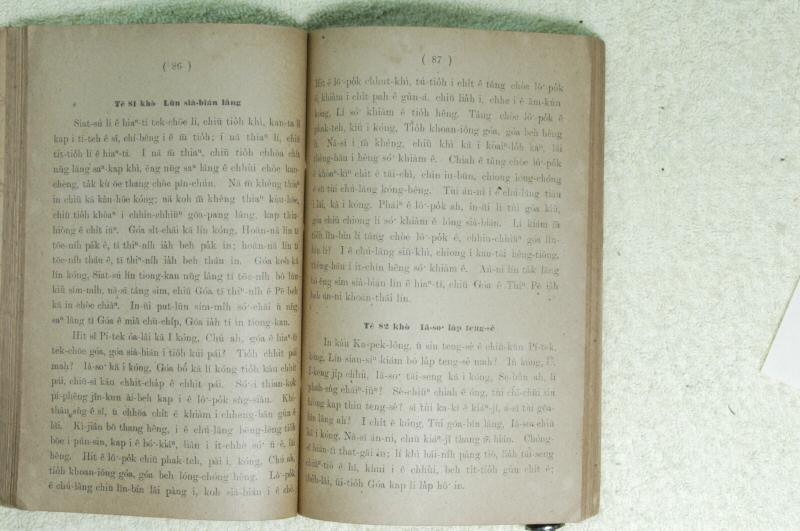 ( 86 )
Tē 81 khò Lūn sià-bián lâng
Siat-sú lí ê hiaⁿ-tī tek-chōe lí, chiū tio̍h khì, kan-ta lí
kap i tī-teh ê sî, chí-bêng i ê m̄ tio̍h; i nā thiaⁿ lí, chiū
tit-tio̍h lí ê hiaⁿ-tī. I nā m̄ thiaⁿ, chiū tio̍h chhōa chi̍t
nn̄g lâng saⁿ-kap khì, ēng nn̄g saⁿ lâng ê chhùi chòe kan-
chèng, ta̍k kù ōe thang chòe pîn-chún. Nā m̄ khéng thiaⁿ
in chiū kā kàu-hōe kóng; nā koh m̄ khéng thiaⁿ kàu-hōe,
chiū tio̍h khòaⁿ i chhin-chhiūⁿ gōa-pang lâng, kap thiu-
hiòng ê chi̍t iūⁿ. Góa si̍t-chāi kā lín kóng, Hoān-nā lín tī
tōe-ni̍h pa̍k ê, tī thiⁿ-ni̍h ia̍h beh pa̍k in; hoān-nā lín tī
tōe-ni̍h tháu ê, tī thiⁿ-ni̍h ia̍h beh tháu in. Góa koh kā
lín kóng, Siat-sú lín tiong-kan nn̄g lâng tī tōe-ni̍h bô lūn-
kiû sím-mi̍h, nā-sī tâng sim, chiū Góa tī thiⁿ-ni̍h ê Pē beh
kā in chòe chiâⁿ. In-ūi put-lūn sím-mi̍h só͘-chāi ū nn̄g
saⁿ lâng tī Góa ê miâ chū-chi̍p, Góa ia̍h tī in tiong-kan.
Hit sî Pí-tek óa-lâi kā I kóng, Chú ah, góa ê hiaⁿ-tī
tek-chōe góa, góa sià-bián i tio̍h kúi pái? Tio̍h chhit pái
mah? Iâ-so͘ kā i kóng, Góa bô kā lí kóng tio̍h kàu chhit
pái, chiū-sī kàu chhit-cha̍p ê chhit pái. Só͘-í thian-kok
pí-phēng jîn-kun ài-beh kap i ê lô͘-po̍k sǹg-siàu. Khí-
thâu sǹg ê sî, ū chhōa chi̍t ê khiàm i chheng-bān gûn ê
lâi. Ki-jiân bô thang hêng, i ê chú-lâng bēng-lēng tio̍h
bōe i pún-sin, kap i ê bó͘-kiáⁿ, liân i it-chhè só͘ ū ê, lâi
hêng. Hit ê lô͘-po̍k chiū phak-teh, pài i, kóng, Chú ah,
tio̍h khoan-iông góa, góa beh lóng-chóng hêng. Lô͘-po̍k
ê chú-lâng chiū lîn-bín lâi pàng i, koh sià-bián i ê chè.
( 87 )
Hit ê lô͘-po̍k chhut-khì, tú-tio̍h i chi̍t ê tâng chòe lô͘-po̍k
ê, khiàm i chi̍t pah ê gûn-á, chiū lia̍h i, chhe i ê âm-kún
kóng, Lí só͘ khiàm ê tio̍h hêng. Tâng chòe lô͘-po̍k ê
phak-teh, kiû i kóng, Tio̍h khoan-iông góa, góa beh hêng
lí. Nā-sī i m̄ khéng, chiū khì kā i koaiⁿ-lo̍h kaⁿ, lâi
thèng-hāu i hêng só͘ khiàm ê. Chiah ê tâng chòe lô͘-po̍k
ê khòaⁿ-kìⁿ chi̍t ê tāi-chì, chin iu-būn, chiong lóng-chóng
ê sū tùi chú-lâng kóng-bêng. Tùi án-ni i ê chú-lâng tiàu
i lâi, kā i kóng, Pháiⁿ ê lô͘-po̍k ah, in-ūi lí tùi góa kiû,
góa chiū chiong lí só͘ khiàm ê lóng sià-bián. Lí kiám m̄
tio̍h lîn-bín lí tâng chòe lô͘-po̍k ê, chhin-chhiūⁿ góa lîn-
bín lí? I ê chú-lâng siū-khì, chiong i kau-tài hêng-tiông,
thèng-hāu i it-chīn hêng só͘ khiàm ê. Án-ni lín ta̍k lâng
nā bô ēng sim sià-bián lín ê hiaⁿ-tī, chiū Góa ê Thiⁿ Pē ia̍h
beh án-ni khoán-thāi lín.
Tē 82 khò Iâ-so͘ la̍p teng-sè
In kàu Ka-pek-lông, ū siu teng-sè ê chiū-kūn Pí-tek,
kóng, Lín sian-siⁿ kiám bô la̍p teng-sè mah? Iń kóng, Ū.
I-keng ji̍p chhù, Iâ-so͘ tāi-seng kā i kóng, Se-bûn ah, lí
phah-sǹg cháiⁿ-iūⁿ? Sè-chiūⁿ chiah ê ông, tùi chī-chūi siu
hiòng kap thiu teng-sè? sī tùi ka-kī ê kiáⁿ-jî, á-sī tùi gōa-
bīn lâng ah? I chi̍t ê kóng, Tùi gōa-bīn lâng, Iâ-so͘ chiū
kā i kóng, Nā-sī án-ni, chiū kiáⁿ-jî thang m̄ bián. Chóng-
sī bián-tit that-gāi in; lí khì hái-ni̍h pàng tiò, lia̍h tāi-seng
chiūⁿ-tiò ê hî, khui i ê chhùi, beh tit-tio̍h gûn chi̍t ê;
the̍h-lâi, ūi-tio̍h Góa kap lí la̍p hō͘ in.